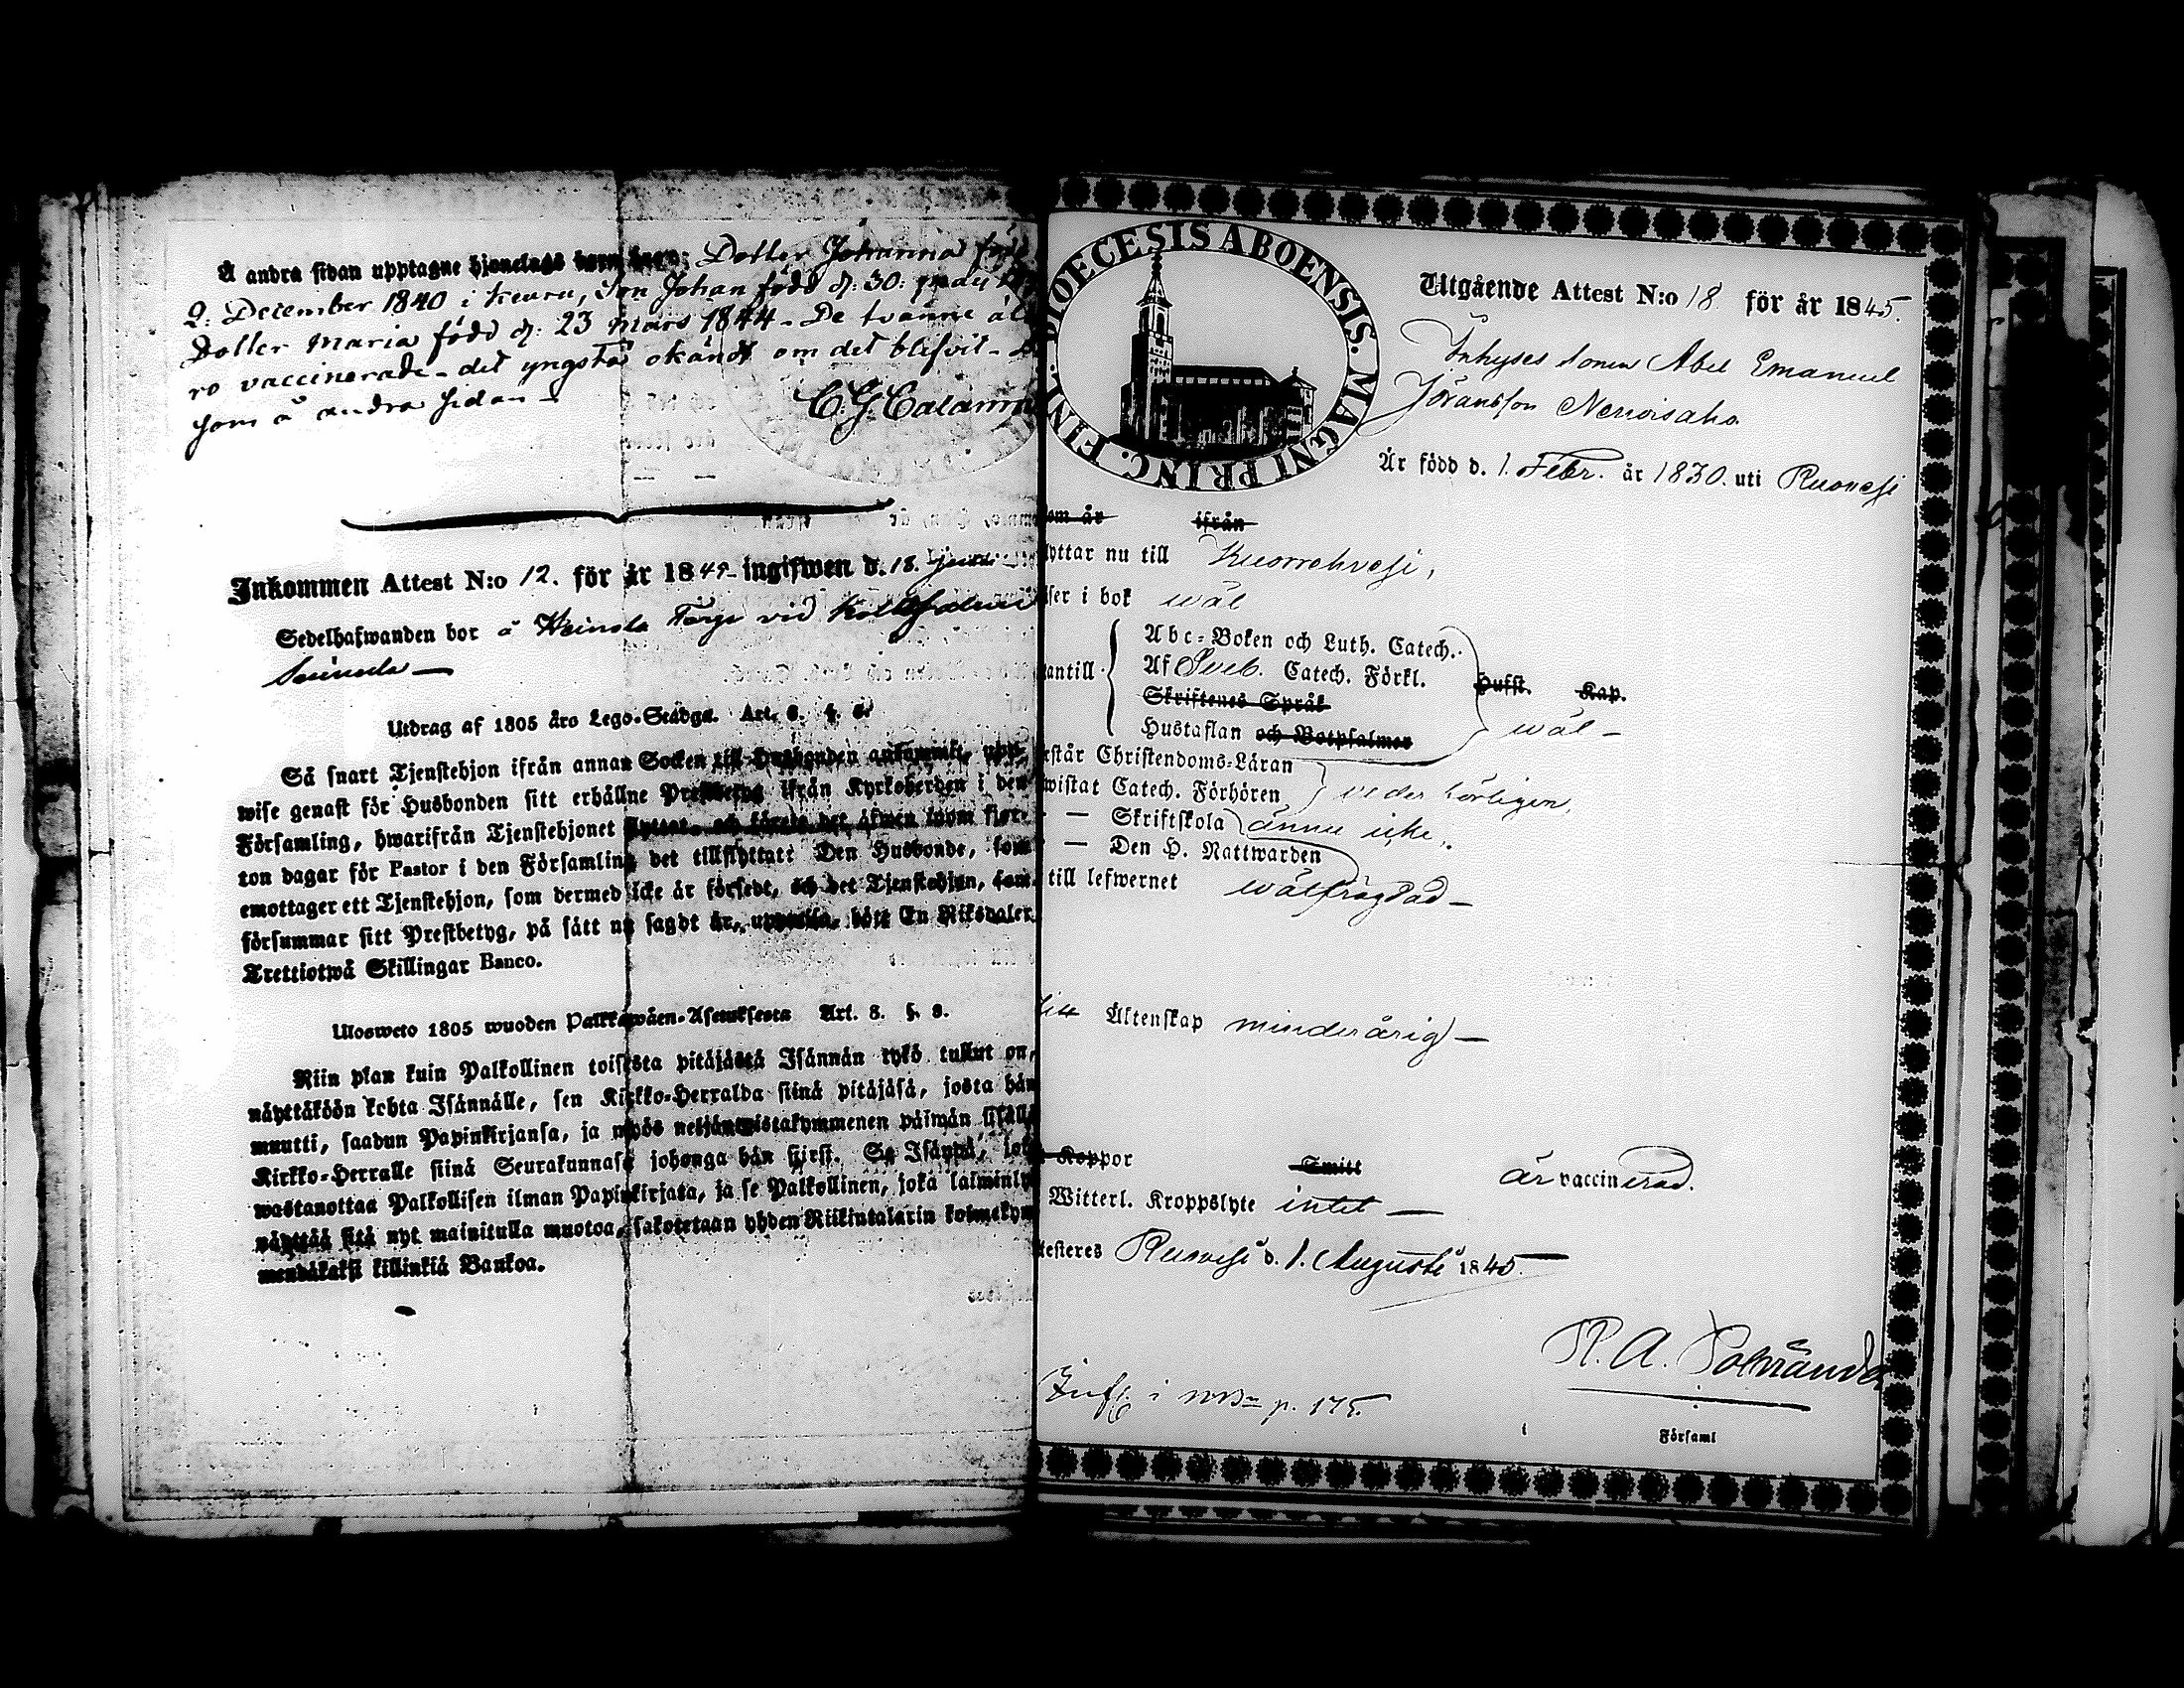 Å andra sidan upptagne hjonelags barn äro: Dotter Johanna född
2: December 1840 i Keuru, Son Johan född d: 30: maij
Dotter Maria född d: 23 Mars 1844 - De tvänne äl
ro vaccinerade - det yngsta okändt om det blifvit -
som å andra sidan -
C. G. Calamn
Inkommen Attest N:o 12. för år 184 ingifwen d. 18. Junii
Sedelhafwanden bor å Torp vid
Utdrag af 1805 års Lego-Stadga. Art. 8. §. 8.
Så snart Tjenstehjon ifrån annan Socken till Husbonden ankommit, upp-
wise genast för Husbonden sitt erhållne Prestbetyg ifrån Kyrkoherden i den
Församling, hwarifrån Tjenstehjonet flyttat, och förete det äfwen inom fjor-
ton dagar för Pastor i den Församling det tillflyttat: Den Husbonde, som
emottager ett Tjenstehjon, som dermed icke är försedt, och det Tjenstehjon, som
försummar sitt Prestbetyg, på sätt nu sagdt är, uppwisa, böte En Riksdaler
Trettiotwå Skillingar Banco.
Ulosweto 1805 wuoden Palkkawäen-Asetuksesta Art. 8. §. 8.
Niin pian kuin Palkollinen toisesta pitäjästä Isännän tykö tullut on,
näyttäköön kohta Isännälle, sen Kirkko-Herralda siinä pitäjäsä, josta hän
muutti, saadun Papinkirjansa, ja myös neljäntoistakymmenen päiwän sisällä
Kirkko-Herralle siinä Seurakunnasa johonga hän siirsi. Se Isändä, jok
wastanottaa Palkollisen ilman Papinkirjata, ja se Palkollinen, joka laiminly
näyttää sitä nyt mainitulla muotoa, sakotetaan yhden Riikintalarin kolmekym
mendäkaksi killinkiä Bankoa.
DIOECESIS ABOENSIS. MAGNI PRINC. FINL.
Utgående Attest N:o 18 för år 1845.
Inhyses sonen Abel Emanuel
Göransson
Är född d. 1. Febr. år 1830. uti Ruovesi
om år ifrån
lyttar nu till Kuorrehvesi,
iser i bok wäl
Abc-Boken och Luth. Catech.
antill Af Sveb. Catech. Förkl. Hufst. Kap.
Skriftenes Språk
Hustaflan och Botpsalmer wäl -
rstår Christendoms-Läran
wistat Catech. Förhören wederbörligen,
- — Skriftskola ännu icke,
- — Den H. Nattwarden
till lefwernet wälfrägdad -
Äktenskap minderårig -
Koppor Smitt är vaccinerad.
Witterl. Kroppslyte intet —
testeres Ruovesi d. 1. Augusti 1845.
Församl